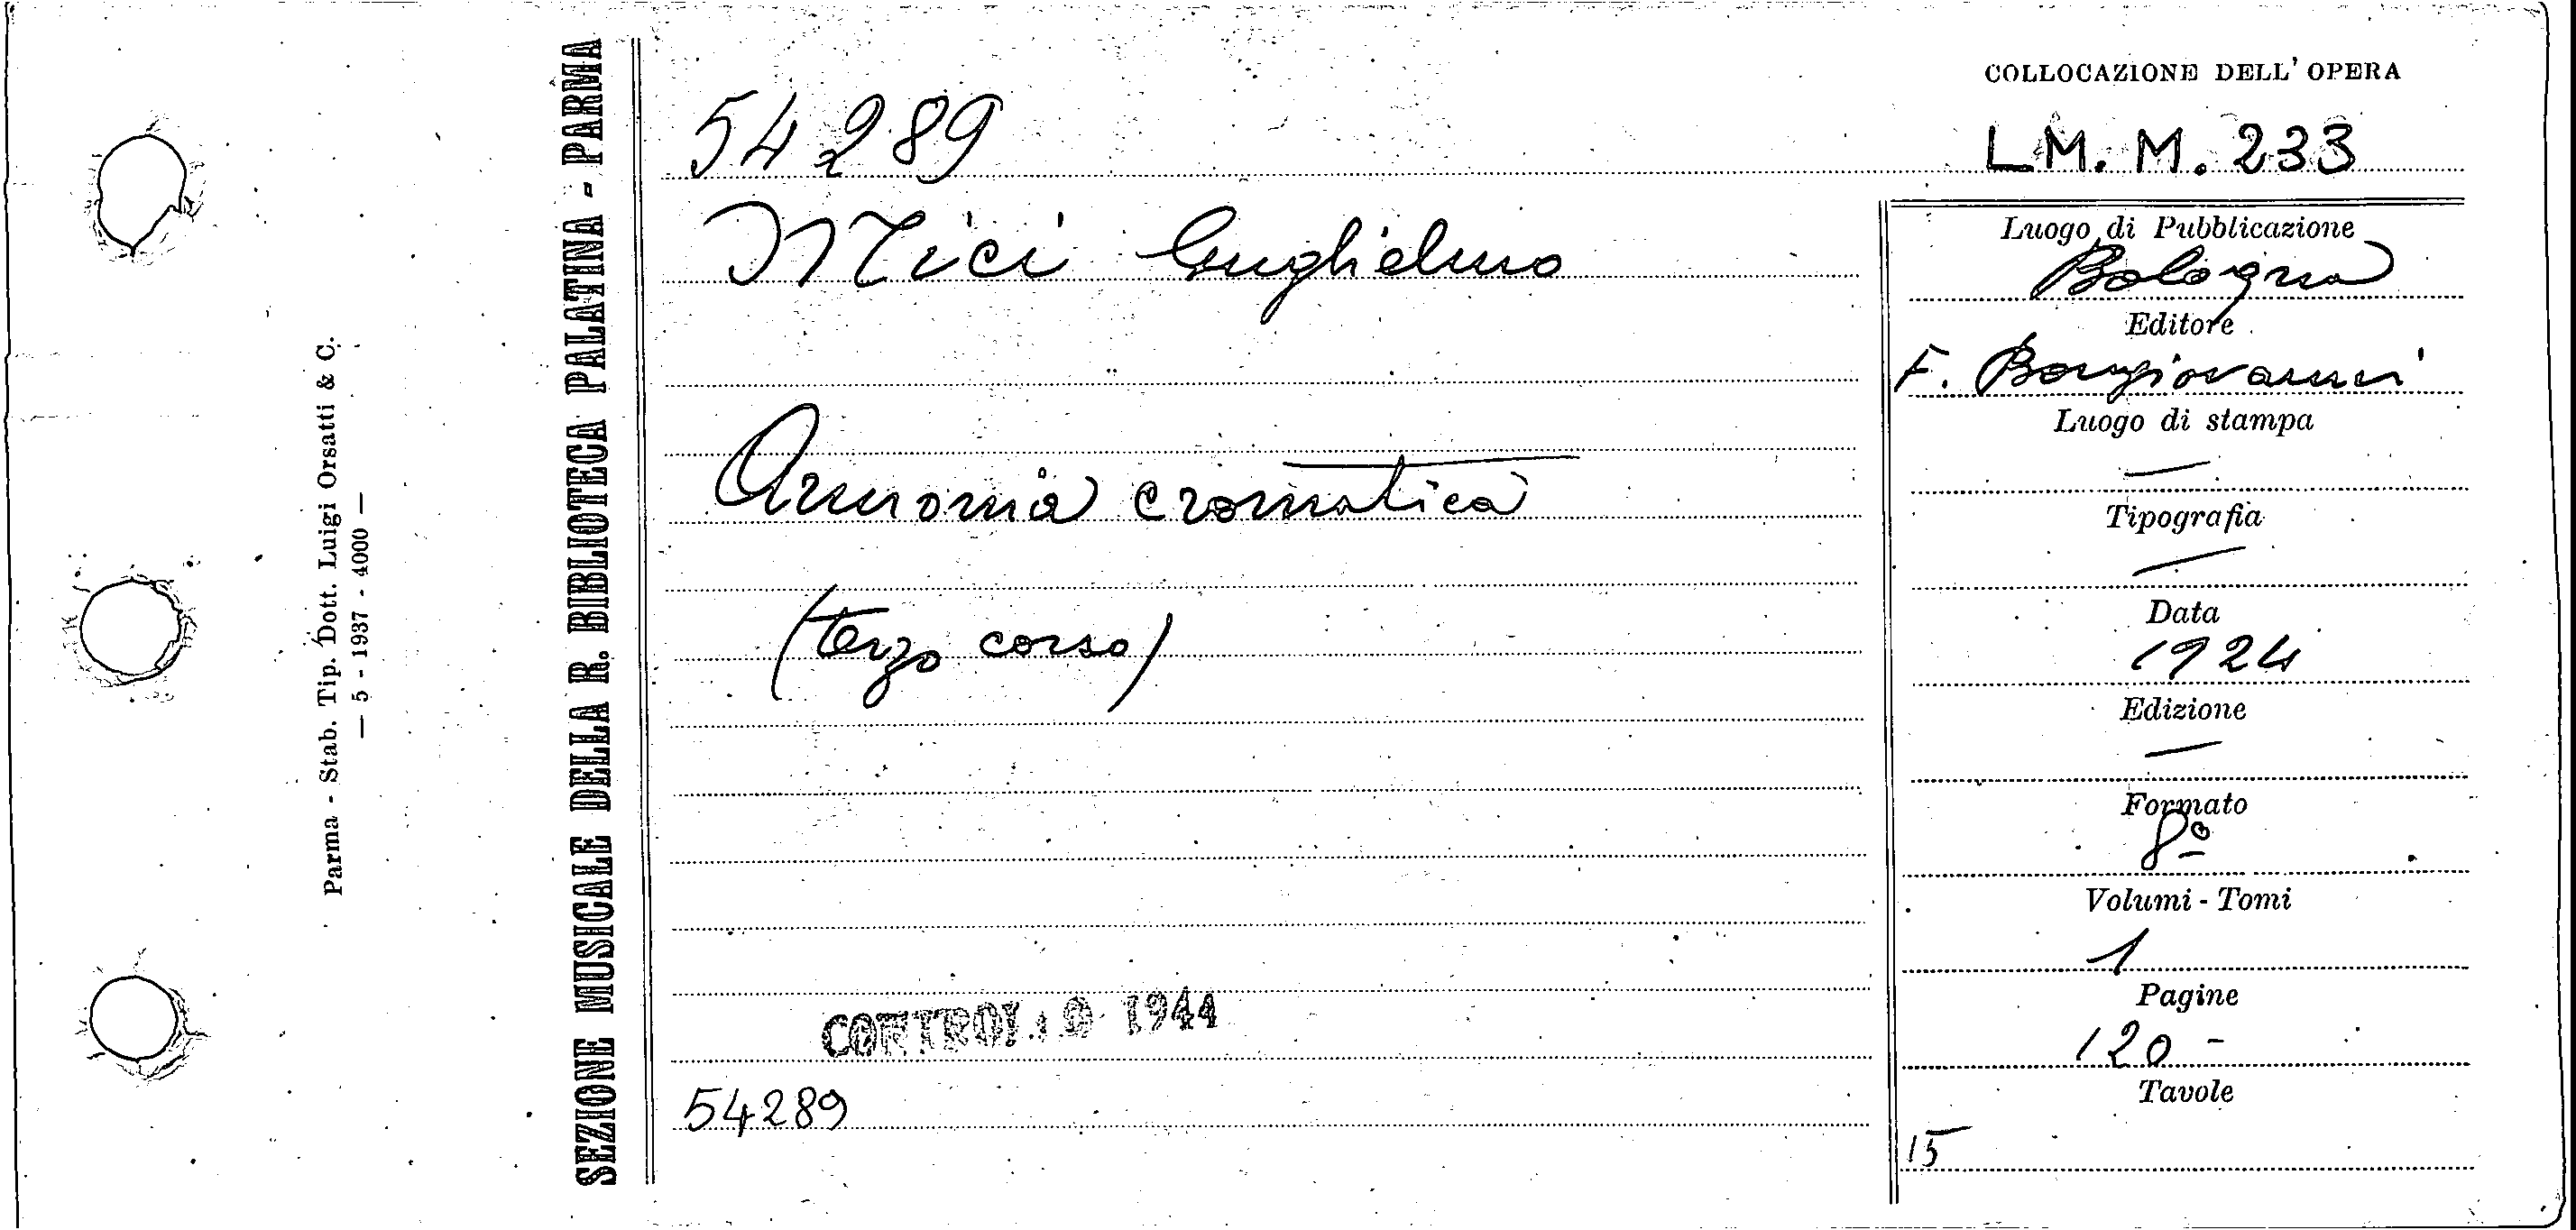 Parma - Stab. Tip. Dott. Luigi Orsatti & C.
— 5 - 1937 - 4000 —
SEZIONE MUSICALE DELLA R. BIBLIOTECA PALATINA - PARMA
54289
Mici Guglielmo
Armonia cromatica
(terzo corso)
CONTROL. O 1944
54289
COLLOCAZIONE DELL'OPERA
LM. M. 233
Luogo di Pubblicazione
Bologna
Editore
F. Bongiovanni
Luogo di stampa
—
Tipografia
—
Data
1924
Edizione
—
Formato
8º
Volumi - Tomi
1
Pagine
120 -
Tavole
15